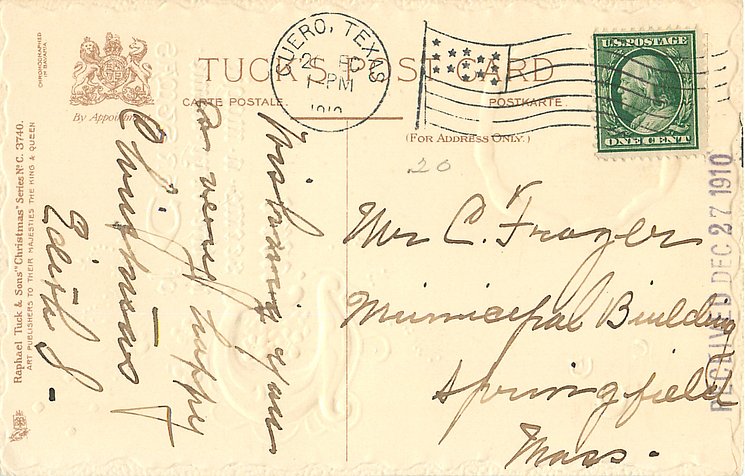 CHROMOGRAPHED
IN BAVARIA
By Appointment
TUCK'S POST CARD
CARTE POSTALE.
POSTKARTE.
(FOR ADDRESS ONLY.)
CUERO, TEXAS
PM
1910
U.S. POSTAGE
ONE CENT
20
Raphael Tuck & Sons' "Christmas" Series No. C. 3740.
ART PUBLISHERS TO THEIR MAJESTIES THE KING & QUEEN
Wishing you
a very happy
Christmas
Edith S-
Mr C. Frazer
Municipal Building
Springfield
Mass.
RECEIVED DEC 27 1910